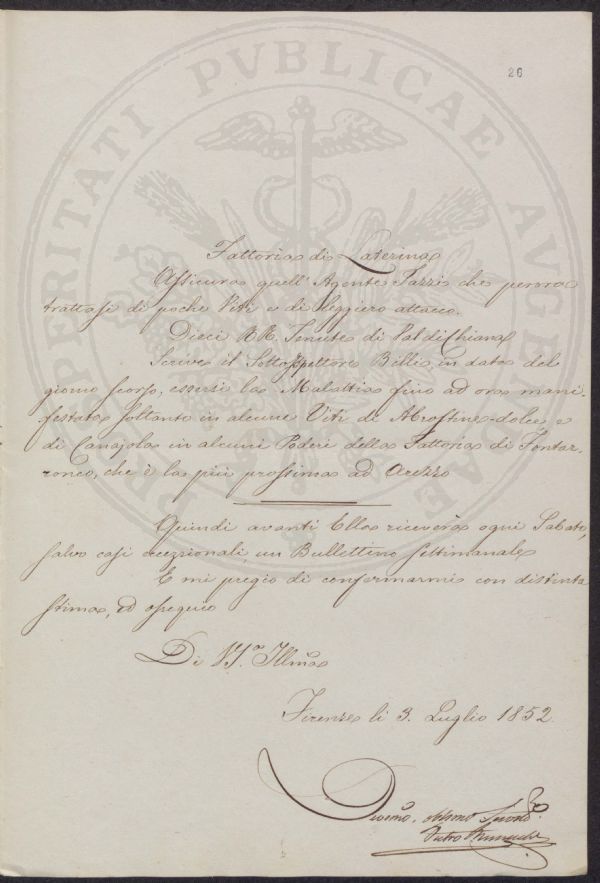 26
PROSPERITATI PVBLICAE AVGENDAE
Fattoria di Laterina
Assicura quell'Agente Tazzi che perora
trattasi di poche Viti e di leggiero attacco.
Dieci RR. Tenute di Val di Chiana
Scrive il Sottospettore Billi, in data del
giorno scorso, essersi la Malattia fino ad ora mani-
festata soltanto in alcune Viti di Abrostine-dolce, e
di Canajola in alcuni Poderi della Fattoria di Fontar-
ronco, che è la più prossima ad Arezzo
Quindi avanti Ella riceverà ogni Sabato,
salvo casi eccezionali, un Bullettino settimanale
E mi pregio di confermarmi con distinta
stima, ed ossequio
Di VS.a Illma
Firenze li 3. Luglio 1852
Devmo. Obbmo Servo
Pietro